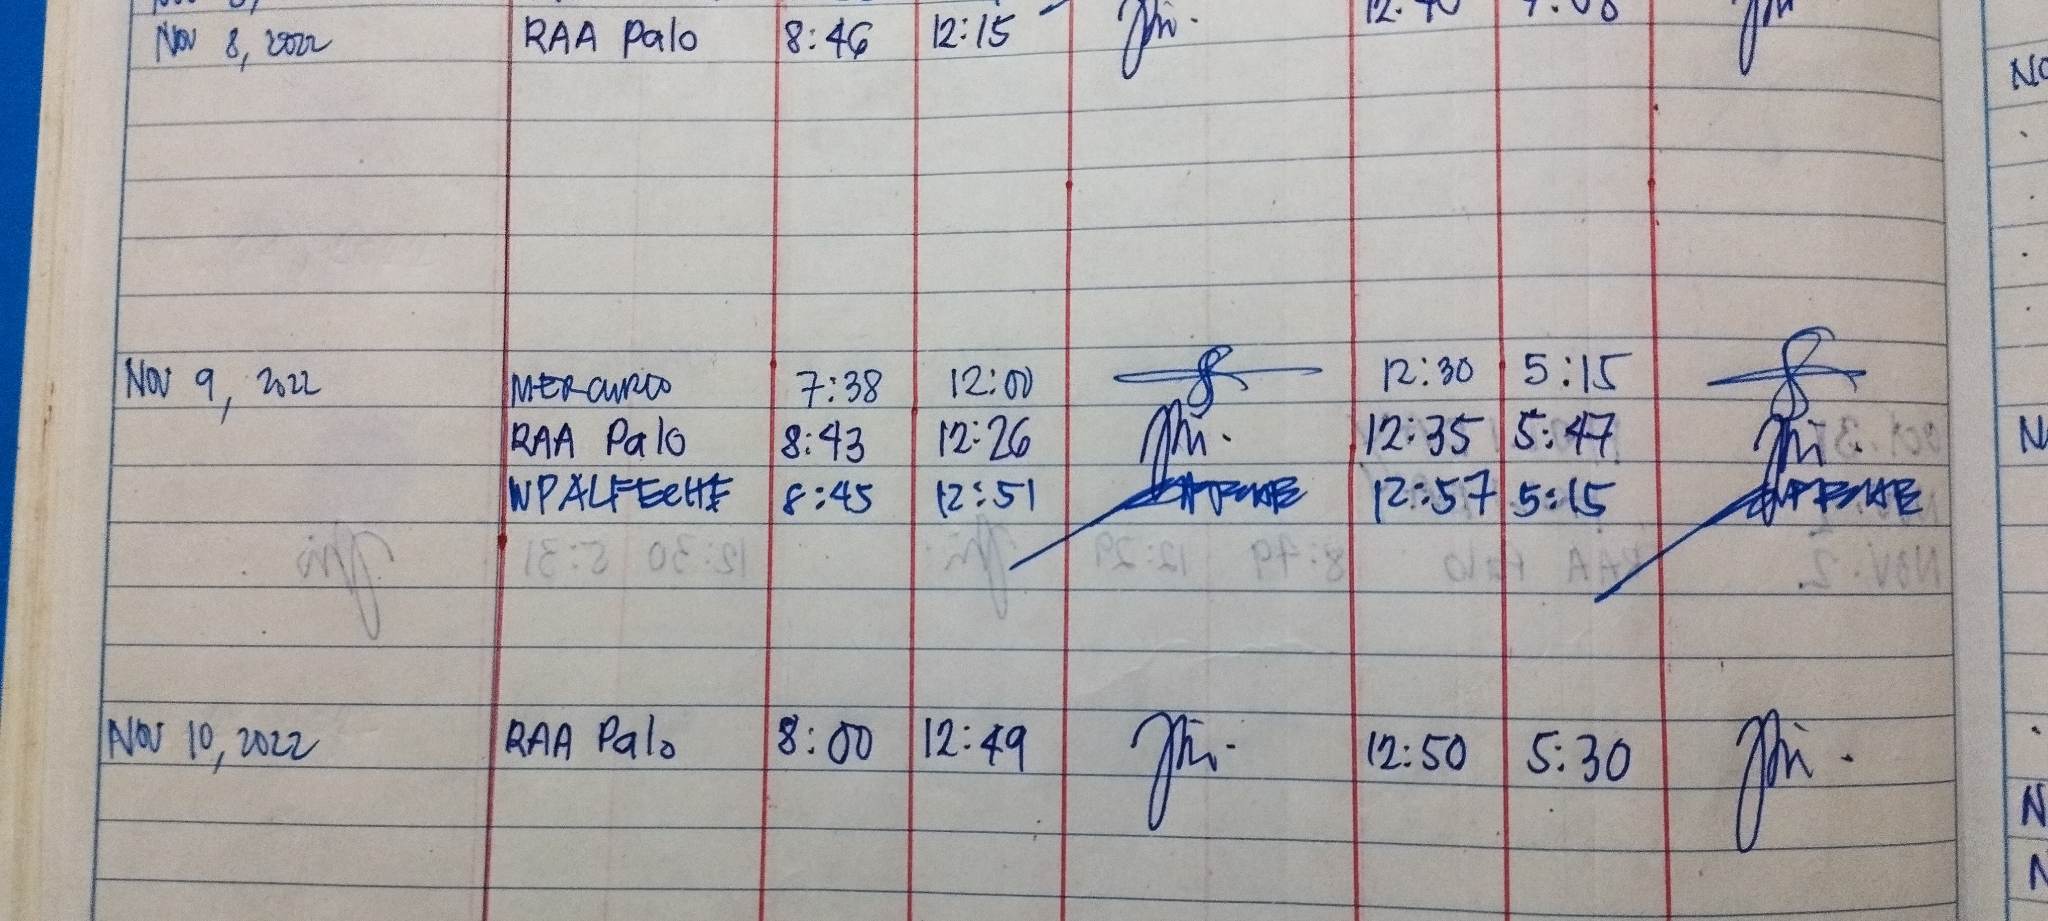 Nov 8, 2022 RAA Palo 8:46 12:15
Nov 9, 2022 MERCURIO 7:38 12:00 12:30 5:15
RAA Palo 8:43 12:26 12:35 5:47
WPALFECHE 8:45 12:51 12:57 5:15
Nov 10, 2022 RAA Palo 8:00 12:49 12:50 5:30